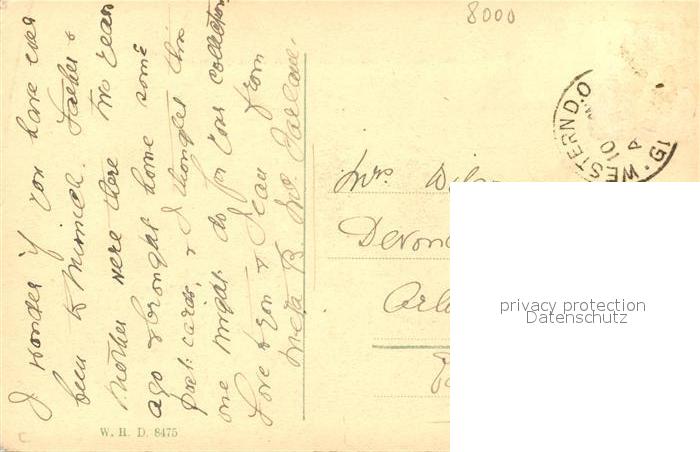 I wonder if you have ever
been to Munich. Father &
Mother were there two years
ago & brought home some
post: cards, & I thought this
one might do for your collection
Love to you & Jean from
Meta B.
8000
WESTERN D.O
10
A
Mrs
Devon
W. H. D. 8475
privacy protection
Datenschutz